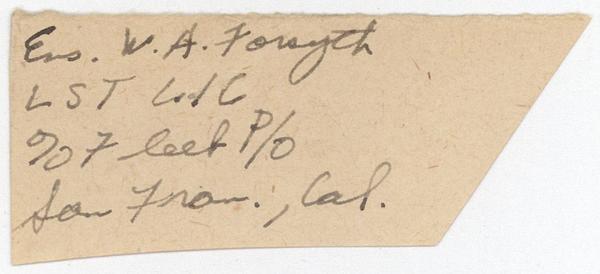 Ens. W. A. Forsyth
LST
℅ Fleet P/O
San Fran., Cal.